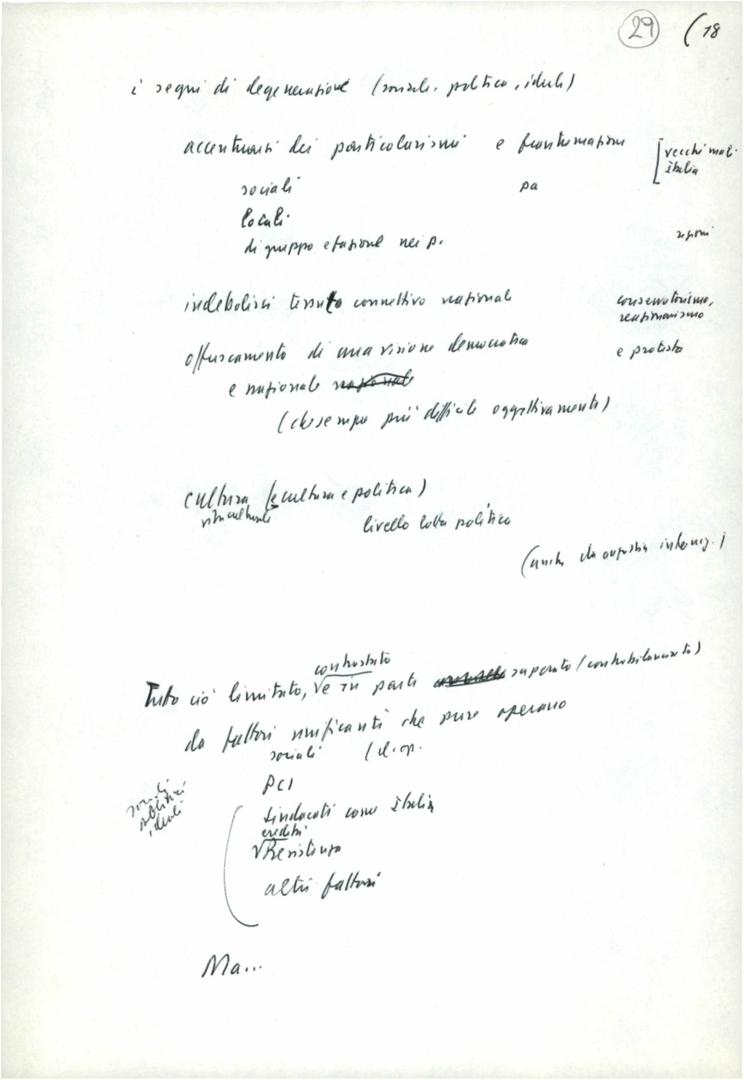 29 (18
i segni di degenerazione (sociale, politica, ideale)
accentuarsi dei particolarismi e frantumazioni [vecchi mali Italia
sociali pa
locali
di gruppo e fazione nei p. regioni
indebolirsi tessuto connettivo nazionale conservatorismo,
reazionarismo
offuscamento di una visione democratica e protesta
e nazionale
(che sempre più difficile oggettivamente)
cultura (e cultura e politica)
vita culturale livello lotta politica
(anche da angoscia
contrastato
Tutto ciò limitato, √e in parte superato/controbilanciato)
da fattori unificanti che pure operano
sociali (cl. op.
sociali
politici
ideali
PCI
Sindacati come Italia
eredità
√Resistenza
altri fattori
Ma...